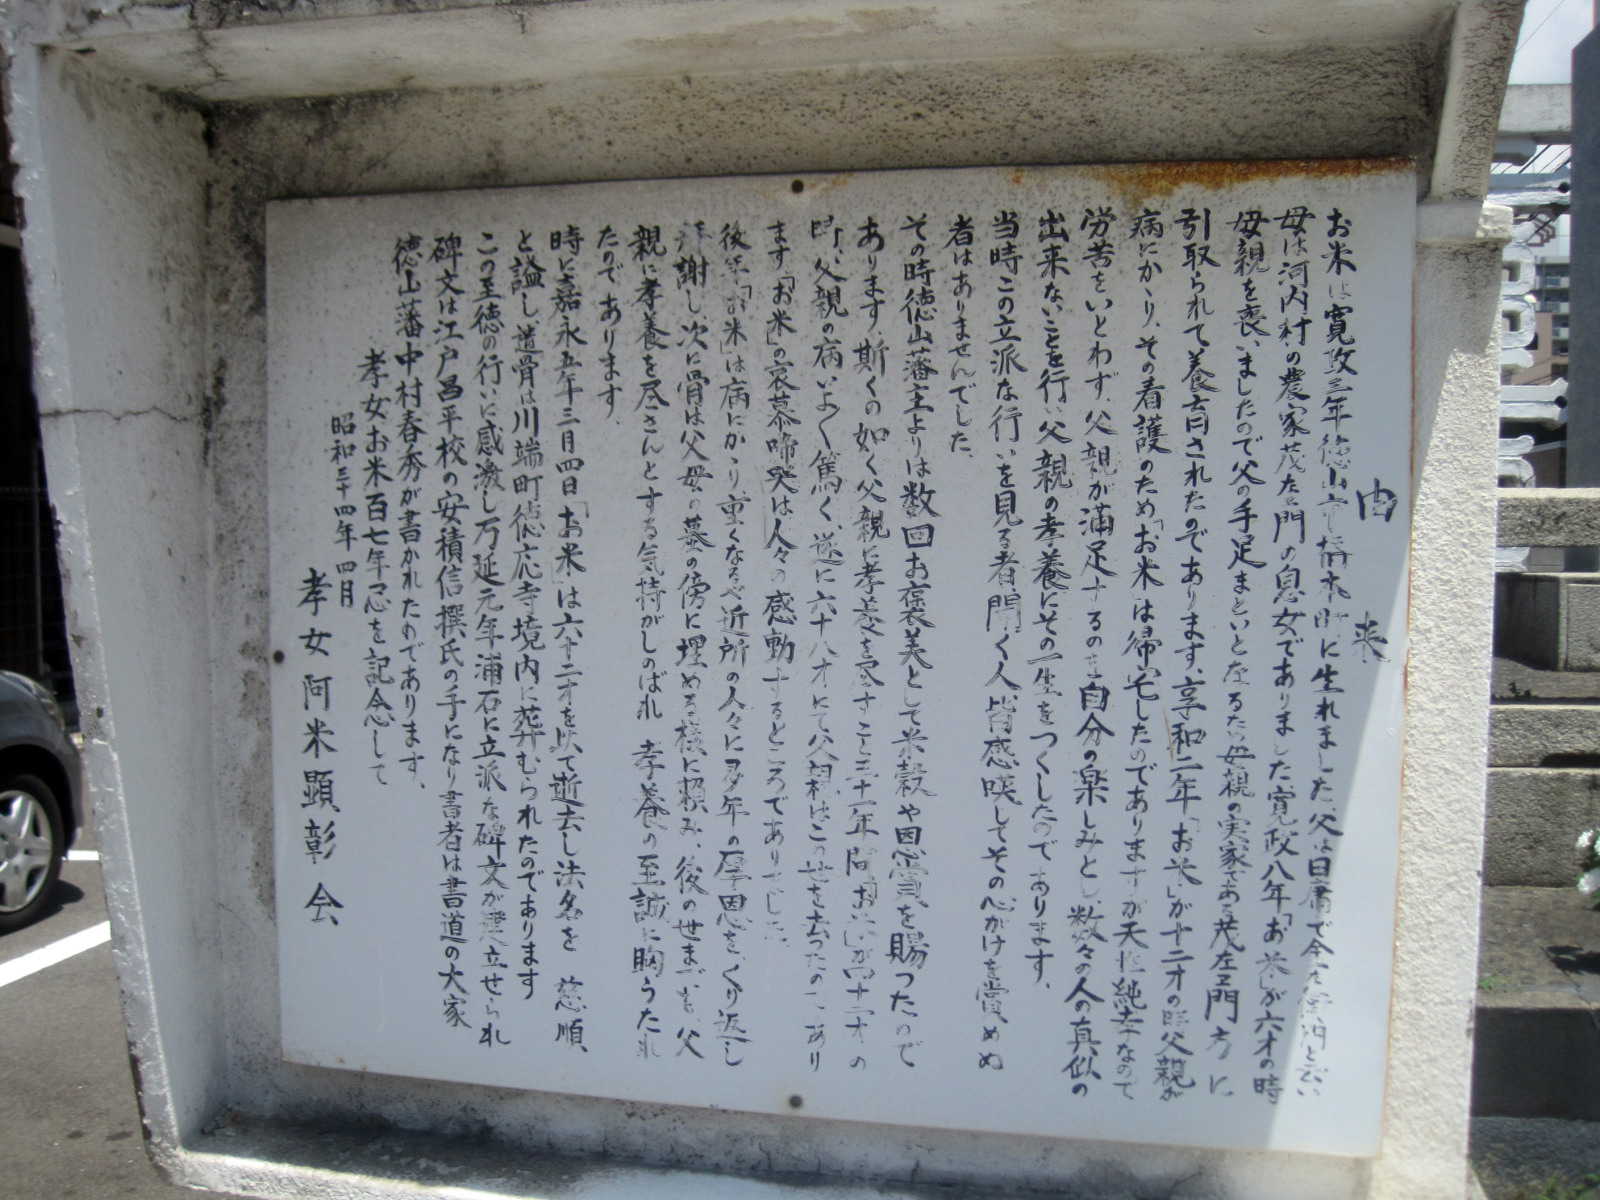 由来
お米は寛政三年徳山市橋本町に生れました父は日庸で今左衛門と云い
母は河内村の農家茂左ヱ門の息女でありました寛政八年「お米」が六才の時
母親を喪いましたので父の手足まといとなるため母親の実家である茂左ヱ門方に
引取られて養育されたのであります、享和二年「お米」が十二才の時父親が
病にかゝり、その看護のため「お米」は帰宅したのでありますが天性純孝なので
労苦をいとわず、父親が満足するのを自分の楽しみとし数々の人の真似の
出来ないことを行い父親の孝養にその一生をつくしたのであります、
当時この立派な行いを見る者、聞く人皆感嘆してその心がけを賞めぬ
者はありませんでした、
その時徳山藩主よりは数回お褒美として米穀や恩賞を賜つたので
あります、斯くの如く父親に孝養を尽すこと三十一年間「お米」が四十二才の
時、父親の病いよく篤く、遂に六十八才にて父親はこの世を去つたのであり
ます「お米」の哀慕啼哭は人々の感動するところでありました、
後年「お米」は病にかゝり重くなるや近所の人々に多年の厚恩をくり返し
拝謝し、次に骨は父母の墓の傍に埋める様に頼み、後の世までも、父
親に孝養を尽さんとする気持がしのばれ 孝養の至誠に胸うたれ
たのであります、
時に嘉永五年三月四日「お米」は六十二才を以て逝去し法名を 慈順、
と謚し遺骨は川端町徳応寺境内に葬むられたのであります
この至徳の行いに感激し万延元年浦石に立派な碑文が建立せられ
碑文は江戸昌平校の安積信撰氏の手になり書者は書道の大家
徳山藩中村春秀が書かれたのであります、
孝女お米百七年忌を記念して
昭和三十四年四月
孝女阿米顕彰会